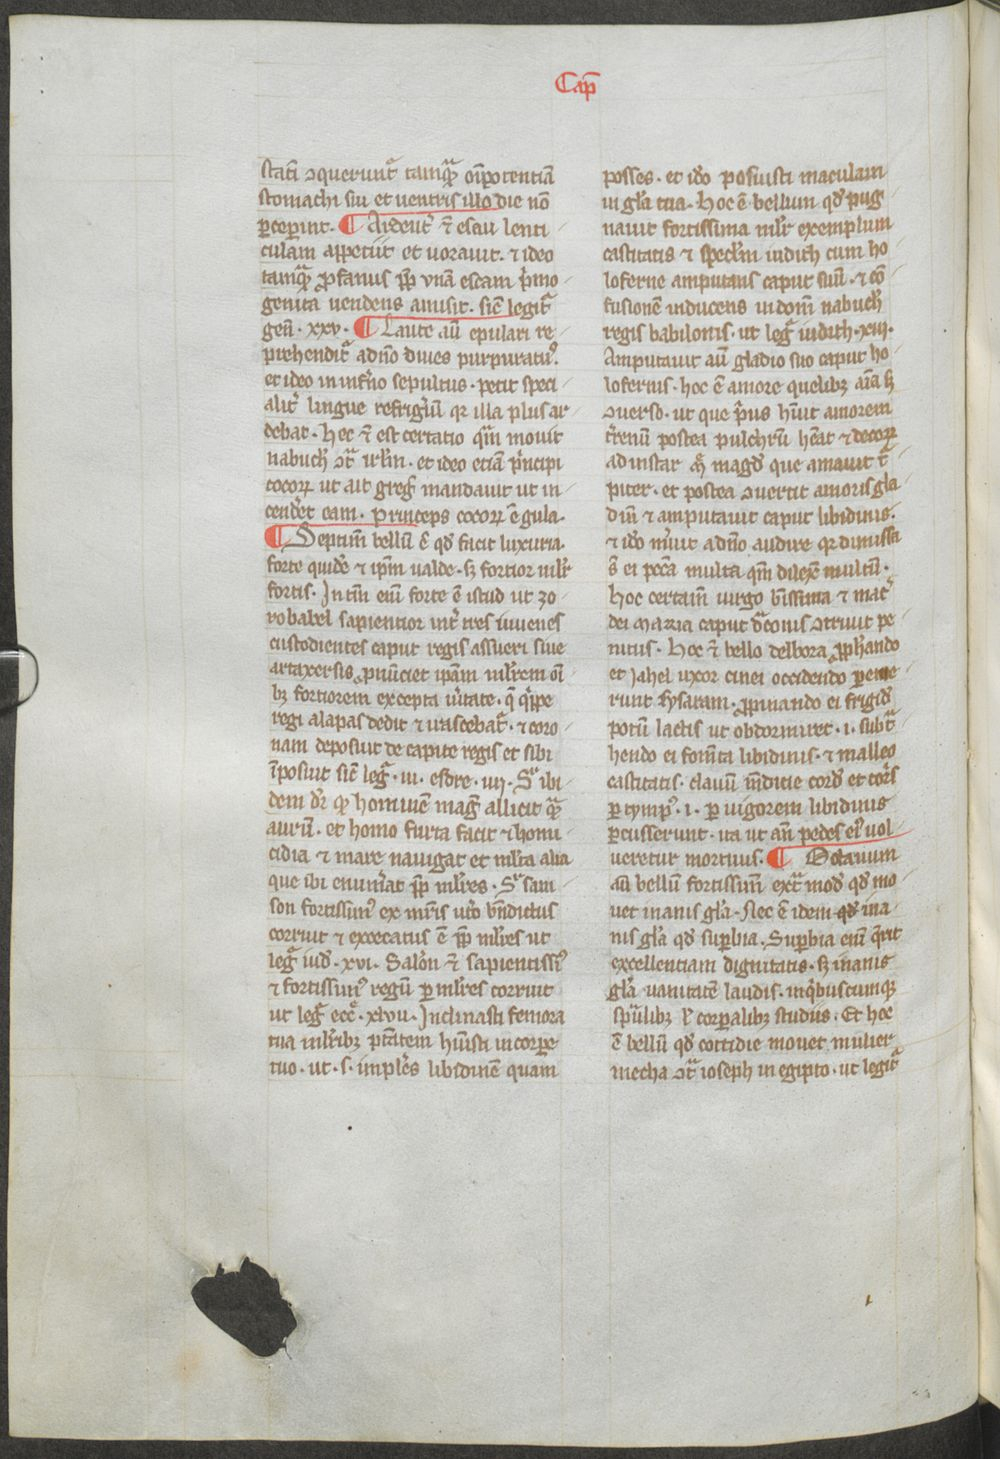 Cap̄
stati ɔquerunt᷑ tamqᷓ oīpotentiā
stomachi sui et uentris illo die nō
ꝑceperint. ¶ Ardent᷑ ⁊̄ esau lenti
culam appetiit et uorauit. ⁊ ideo
tamqᷓ ꝓfanus ꝓp̄ vnā escam p̄mo
genita uendens amisit. sic̄ legit᷑
gen̄. xxv. ¶ Laute aū epulari re
prehendit᷑ a dn̄o diues purpuratꝰ.
et ideo in inf̄no sepultus. petit speci
alit᷑ lingue refriḡiū qr illa plus ar
debat. Hec ⁊̄ est certatio qm̄ mouit
nabuch̄ ɔt᷑ irlm̄. et ideo etiā p̄ncipi
cocoꝝ ut ait greḡ mandauit ut in
cend̄et eam. Princeps cocoꝝ ē gula.
¶ Septim̄ bellū ē qd̄ facit luxuria.
forte quidē ⁊ ip̄m ualde. sꝫ fortior mlr̄
fortis. In tm̄ eni forte ē istud ut zo
robabel sapientior int᷑ tres iuuenes
custodientes caput regis assueri siue
artaxersis ꝓnūciet ip̄am mlr̄em oī
bꝫ fortiorem excepta ūitate. q̄ q̄ppe
regi alapas dedit ⁊ irascebat᷑. ⁊ coro
nam deposuit de capite regis et sibi
īposuit sic̄ leg᷑. iii. esdre. iiij. Sꝫ ibi
dem dr̄ qꝫ hominē maḡ allicit qᷓ
aurū. et homo furta facit ⁊ homi
cidia ⁊ mare nauigat et ml̄ta alia
que ibi enum̄at ꝓp̄ ml̄res. Sꝫ sam
son fortissimꝰ ex mr̄is utero bn̄dictus
corruit ⁊ excecatus ē ꝓp̄ ml̄res ut
leg᷑ iud̄. xvi. Salōn ⁊̄ sapientissiꝰ
⁊ fortissimꝰ regū ꝑ ml̄res corruit
ut leg᷑ ecc̄. xlvii. Inclinasti femora
tua ml̄ribꝫ pt̄atem hūisti in corpe
tuo. ut. s. imples libidinē quam
posses. et ideo posuisti maculam
in gl̄a tua. Hoc ē bellum qd̄ pug
nauit fortissima mlr̄ exemplum
castitatis ⁊ specl̄m iudith cum ho
loferne amputans caput suū. ⁊ cō
fusionē inducens in dom̄ nabuch̄
regis babilonis. ut leg᷑ iudith. xiii.
Amputauit aū gladio suo caput ho
lofernis. hoc ē amore quelibꝫ aīa sꝫ
ɔuerso. ut que p̄us hūit amorem
t᷑renū postea pulchrū hēat ⁊ decoꝝ
ad instar m᷑ magd̄ que amauit t᷑
piter. et postea ɔuertit amoris gla
diū ⁊ amputauit caput libidinis.
⁊ ideo m̄uit a dn̄o audire qr dimissa
s̄ ei pecc̄a multa qm̄ dilexē multū.
Hoc certam̄ uirgo bt̄issima ⁊ mat᷑
dei maria caput d᷑conis ɔtriuit pe
nitus. Hoc ⁊̄ bello delbora ꝓphando
et Jahel uxor cinei occidendo ꝑeme
runt sysaram. ꝓpinando ei frigid̄
potū lactis ut obdormiret. i. subt᷑
hendo ei fom̄ta libidinis. ⁊ malleo
castitatis. clauū m̄dicie cord̄ et cor̄s
ꝑ tympꝰ. i. ꝑ uigorem libidinis
ꝑcusserunt. ita ut añ pedes eiꝰ uol
ueretur mortuus. ¶ Octauum
aū bellū fortissim̄ ext᷑ mod̄ qd̄ mo
uet inanis gl̄a. Nec ē idem qd̄ ina
nis gl̄a qd̄ suꝑbia. Suꝑbia eni q̄rit
excellentiam dignitatis. sꝫ inanis
gl̄a uanitatē laudis. in qⁱbuscumqꝫ
spūalibꝫ ł corꝑalibꝫ studiis. Et hoc
ē bellū qd̄ cottidie mouet mulier
mecha ɔt᷑ ioseph in egipto. ut legit᷑